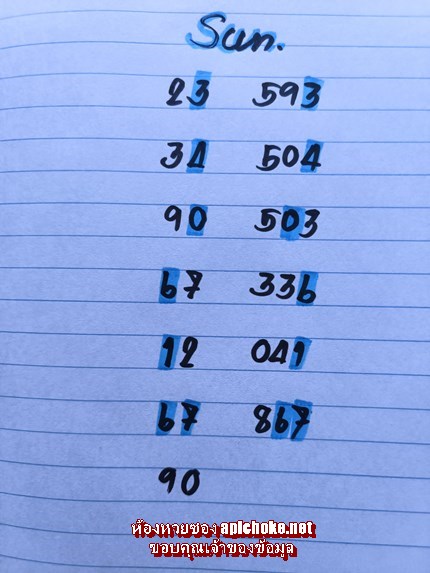 Sun.
23 593
34 504
90 503
67 336
12 041
67 867
90
ห้องหวยซอง apichoke.net
ขอบคุณเจ้าของข้อมูล